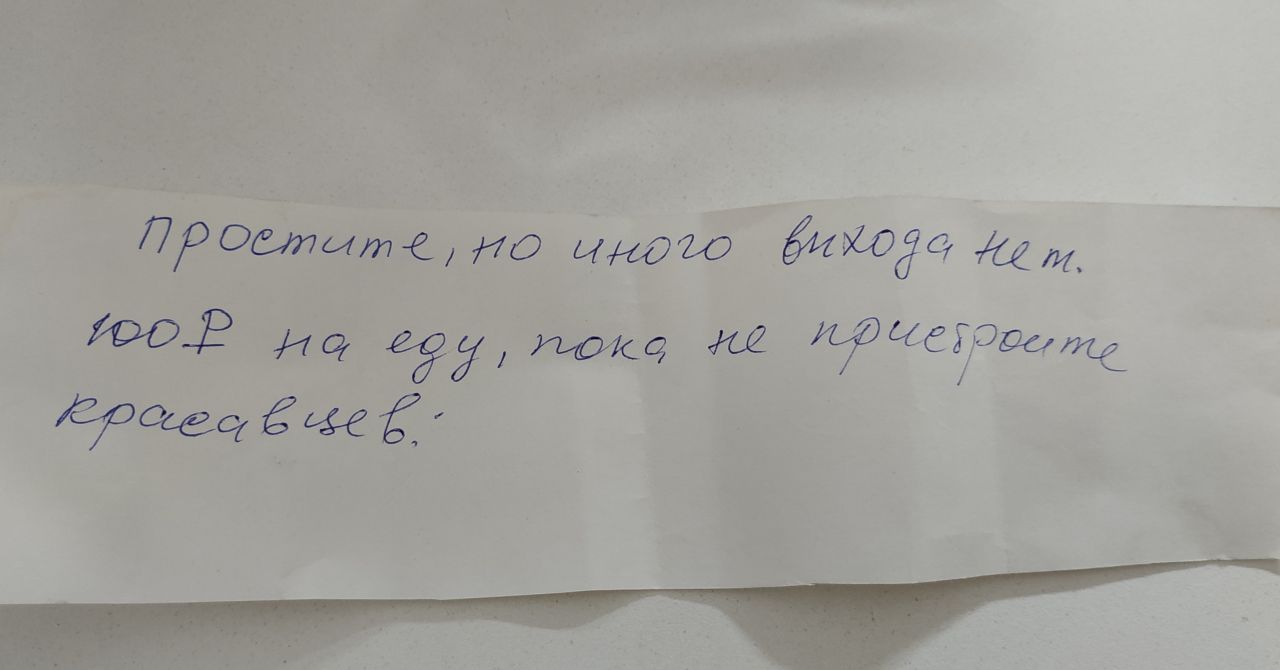 Простите, но иного выхода нет.
100₽ на еду, пока не пристроите
красавцев.